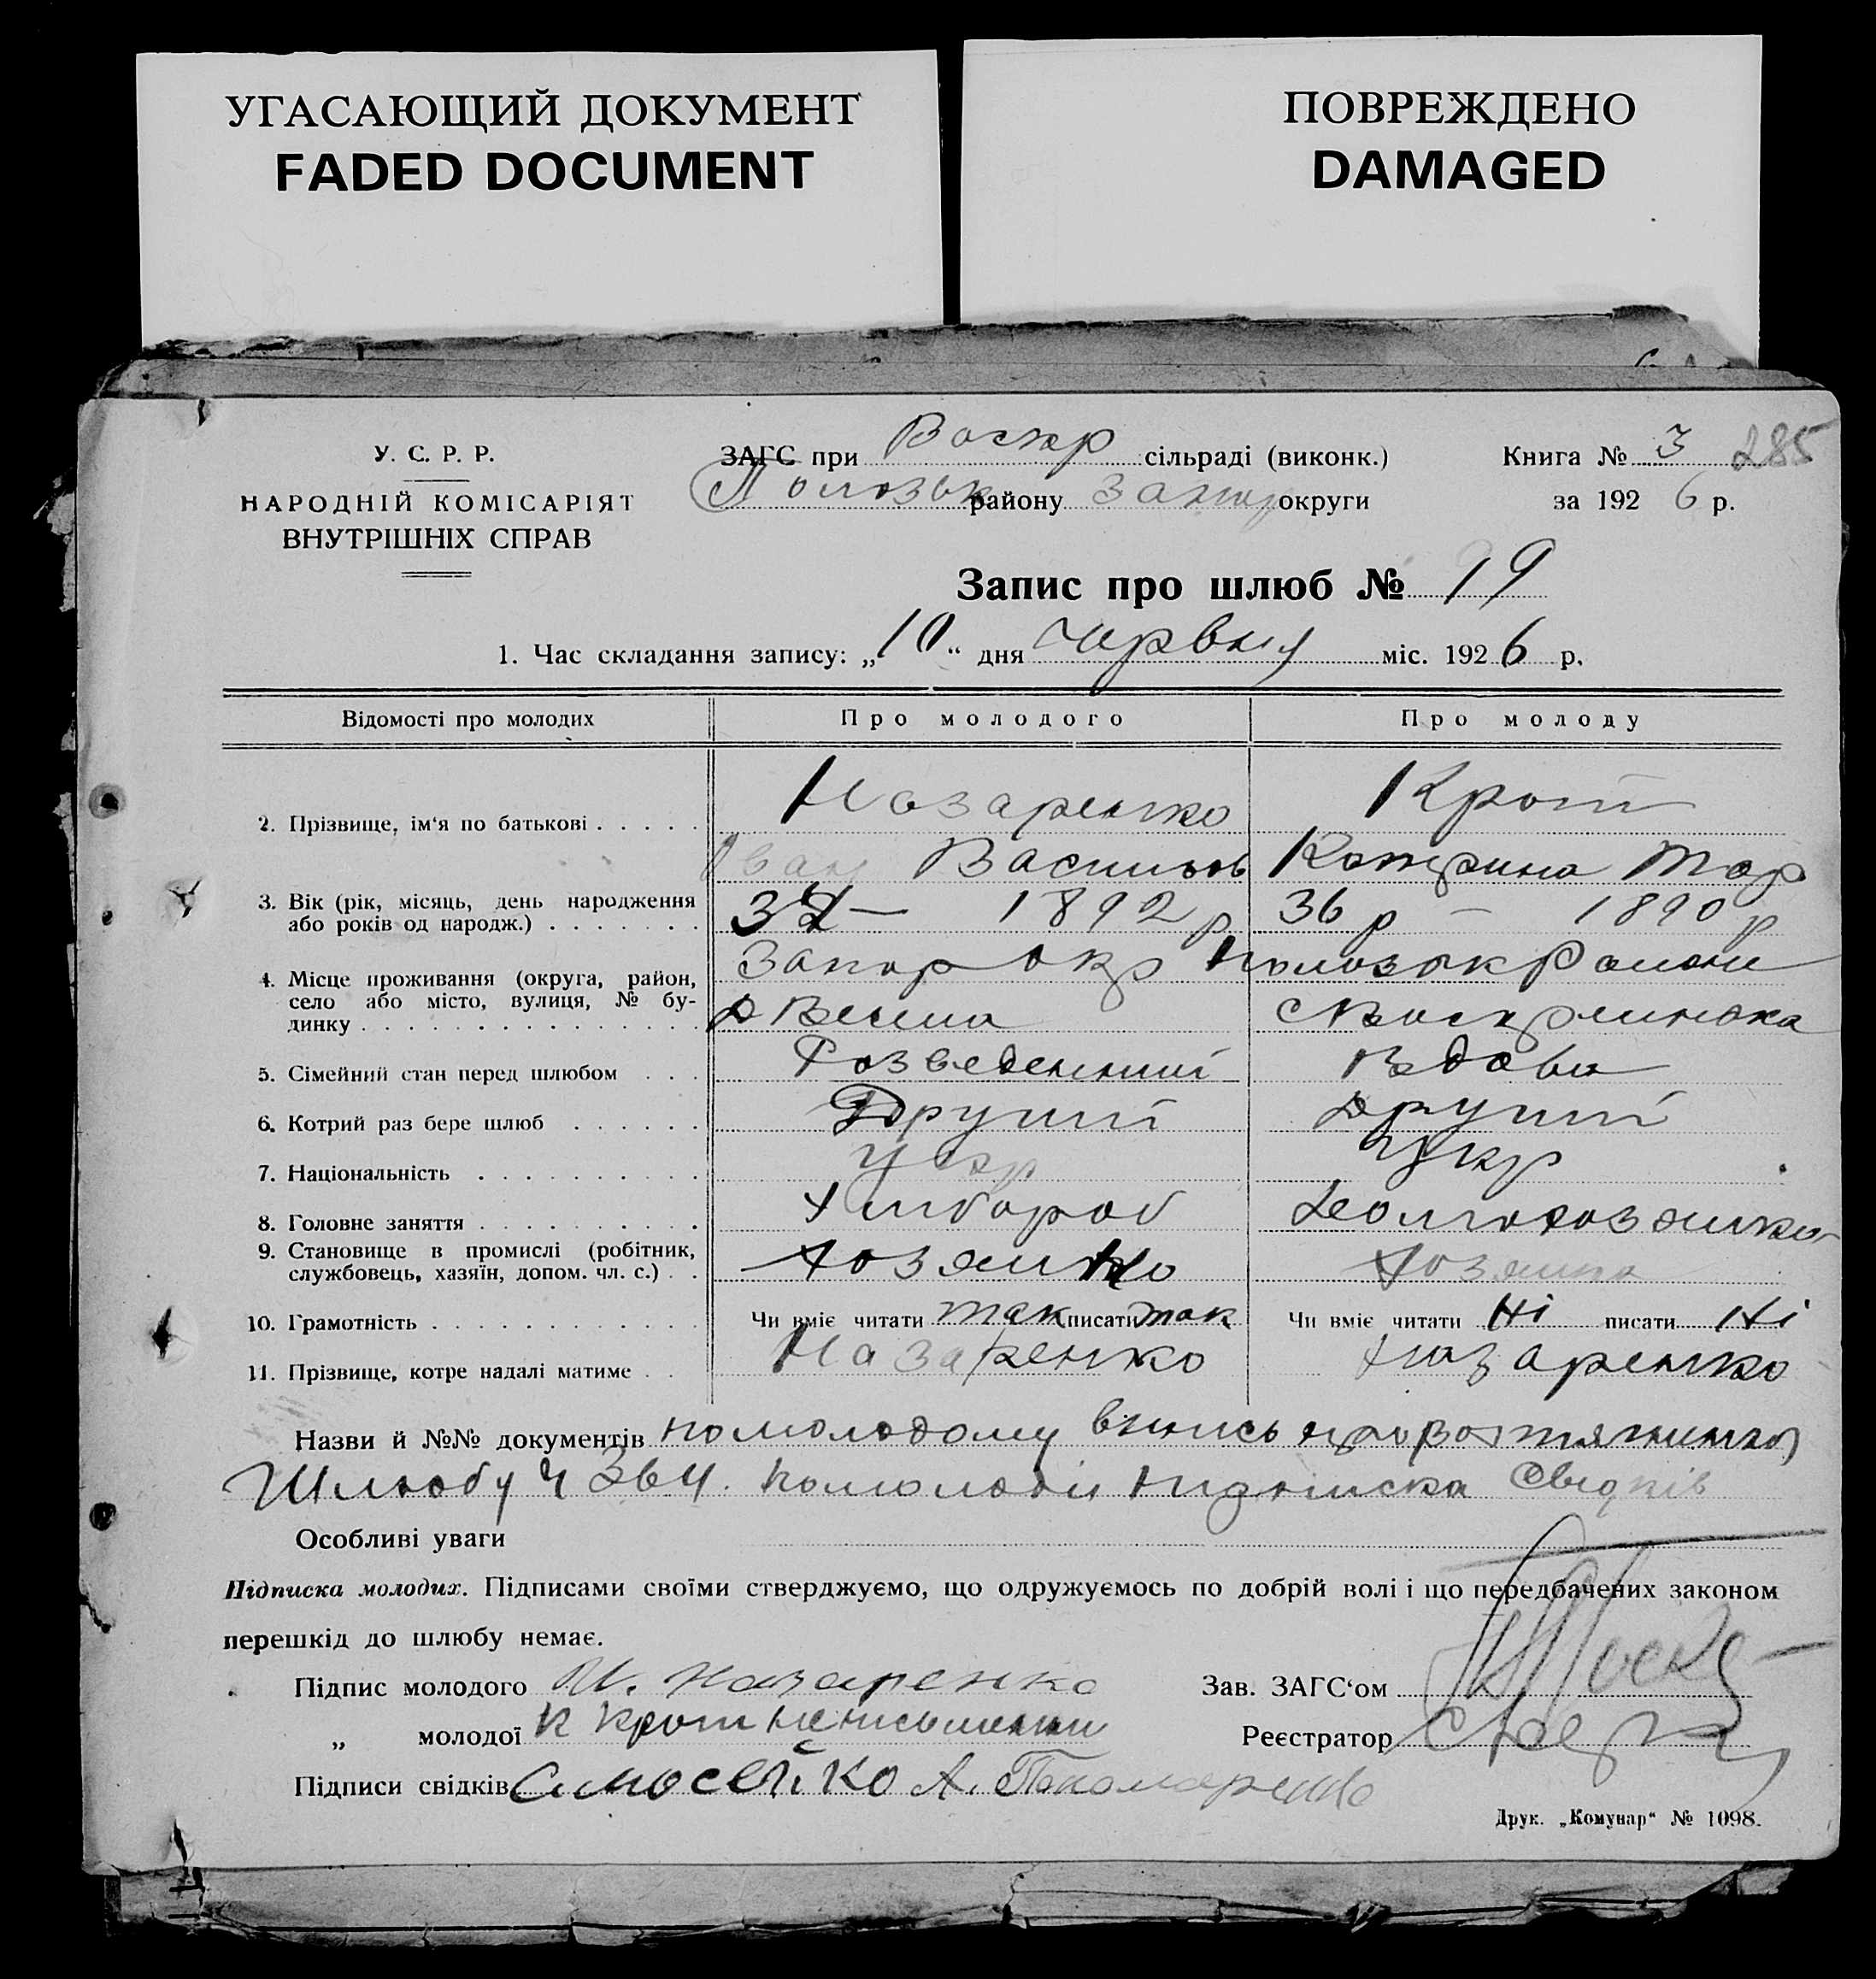 УГАСАЮЩИЙ ДОКУМЕНТ
FADED DOCUMENT
ПОВРЕЖДЕНО
DAMAGED
У. С. Р. Р.
НАРОДНІЙ КОМІСАРІЯТ
ВНУТРІШНІХ СПРАВ
ЗАГС при Воскр сільраді (виконк.)
Пологськ району Запор округи
Книга № 3 285
за 1926 р.
Запис про шлюб № 19
1. Час складання запису: „10“ дня червня міс. 1926 р.
Відомості про молодих Про молодого Про молоду
2. Прізвище, ім‘я по батькові Назаренко Крот
Іван Васильов Катерина
3. Вік (рік, місяць, день народження
або років од народж.) 1892 р 36 р – 1890 р
4. Місце проживання (округа, район,
село або місто, вулиця, № бу-
динку
Запор окр
5. Сімейний стан перед шлюбом Розведенний Вдова
6. Котрий раз бере шлюб Другий Другий
7. Національність Укр Укр
8. Головне заняття Хлібороб
9. Становище в промислі (робітник,
службовець, хазяїн, допом. чл. с.)
10. Грамотність Чи вміє читати так писати так Чи вміє читати Ні писати Ні
11. Прізвище, котре надалі матиме Назаренко Назаренко
Назви й №№ документів помолодому
Шлюбу Ч 364. помолодій підписка свідків
Особливі уваги
Підписка молодих. Підписами своїми стверджуємо, що одружуємось по добрій волі і що передбачених законом
перешкід до шлюбу немає.
Підпис молодого Назаренко
Зав. ЗАГС‘ом
„ молодої К Крот
Реєстратор
Підписи свідків А. Пономаренко
Друк. „Комунар“ № 1098.